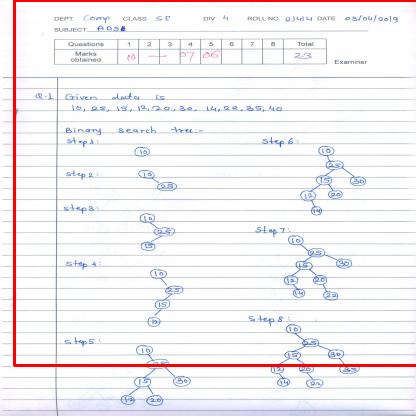 DEPT. Comp CLASS SE DIV 4 ROLL NO. 21414 DATE 03/04/2019
SUBJECT ADSL
Questions 1 2 3 4 5 6 7 8 Total
Marks obtained — 07 06 23
Examiner
Q.1 Given data is
10, 25, 15, 12, 20, 30, 14, 22, 35, 40
Binary search tree:-
Step 1:
10
Step 2:
10
25
Step 3:
10
25
15
Step 4:
10
25
15
12
Step 5:
10
25
15 30
12 20
Step 6:
10
25
15 30
12 20
14
Step 7:
10
25
15 30
12 20
14 22
Step 8:
10
25
15 30
12 20 35
14 22